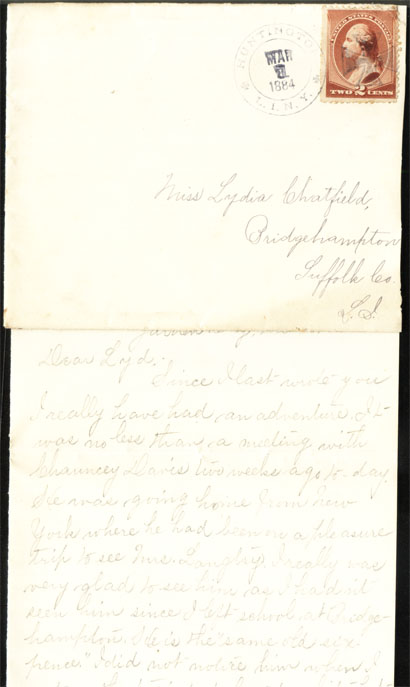 HUNTINGTON
MAR
1
1884
L.I.N.Y.
UNITED STATES POSTAGE
TWO 2 CENTS
Miss Lydia Chatfield,
Bridgehampton
Suffolk Co.
L.I.
Dear Lyd.-
Since I last wrote you
I really have had an adventure. It
was no less than a meeting with
Chauncey Davis two weeks ago to-day.
He was going home from New
York where he had been on a pleasure
trip to see Mrs. Langtry. I really was
very glad to see him as I hadn't
seen him since I left school at Bridge-
hampton. He is the "same old six-
pence." I did not notice him when I